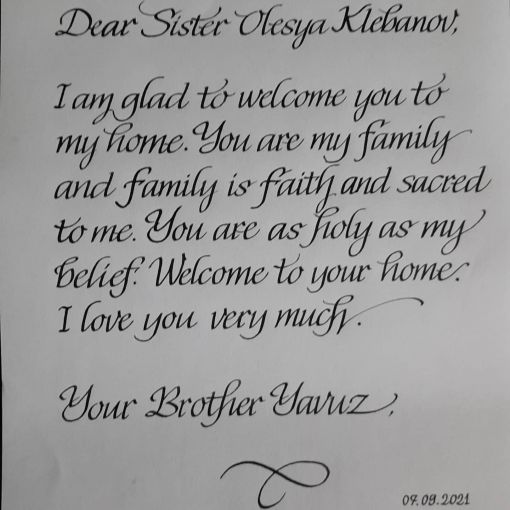 Dear Sister Olesya Klebanov,
I am glad to welcome you to
my home. You are my family
and family is faith and sacred
to me. You are as holy as my
belief. Welcome to your home.
I love you very much.
Your Brother Yavuz,
07.09.2021